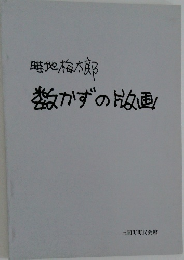 畦地梅太郎
数かずの版画